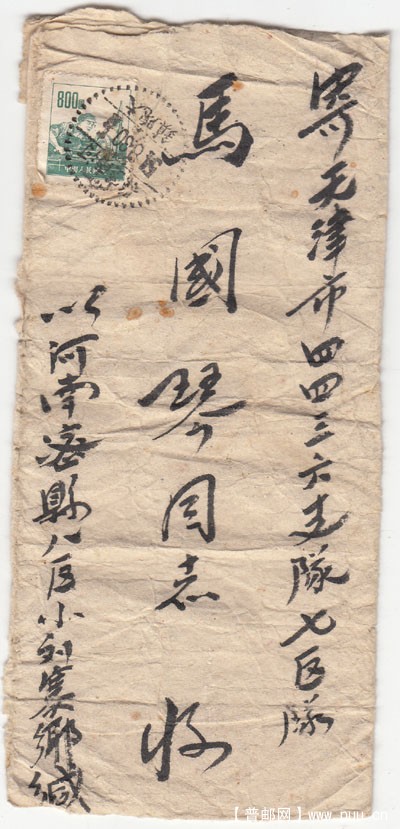 寄天津市四四三六支隊七区隊
馬國琴同志 收
以河南密縣八区小刘寨鄉緘
800
【普邮网】www.puu.cn